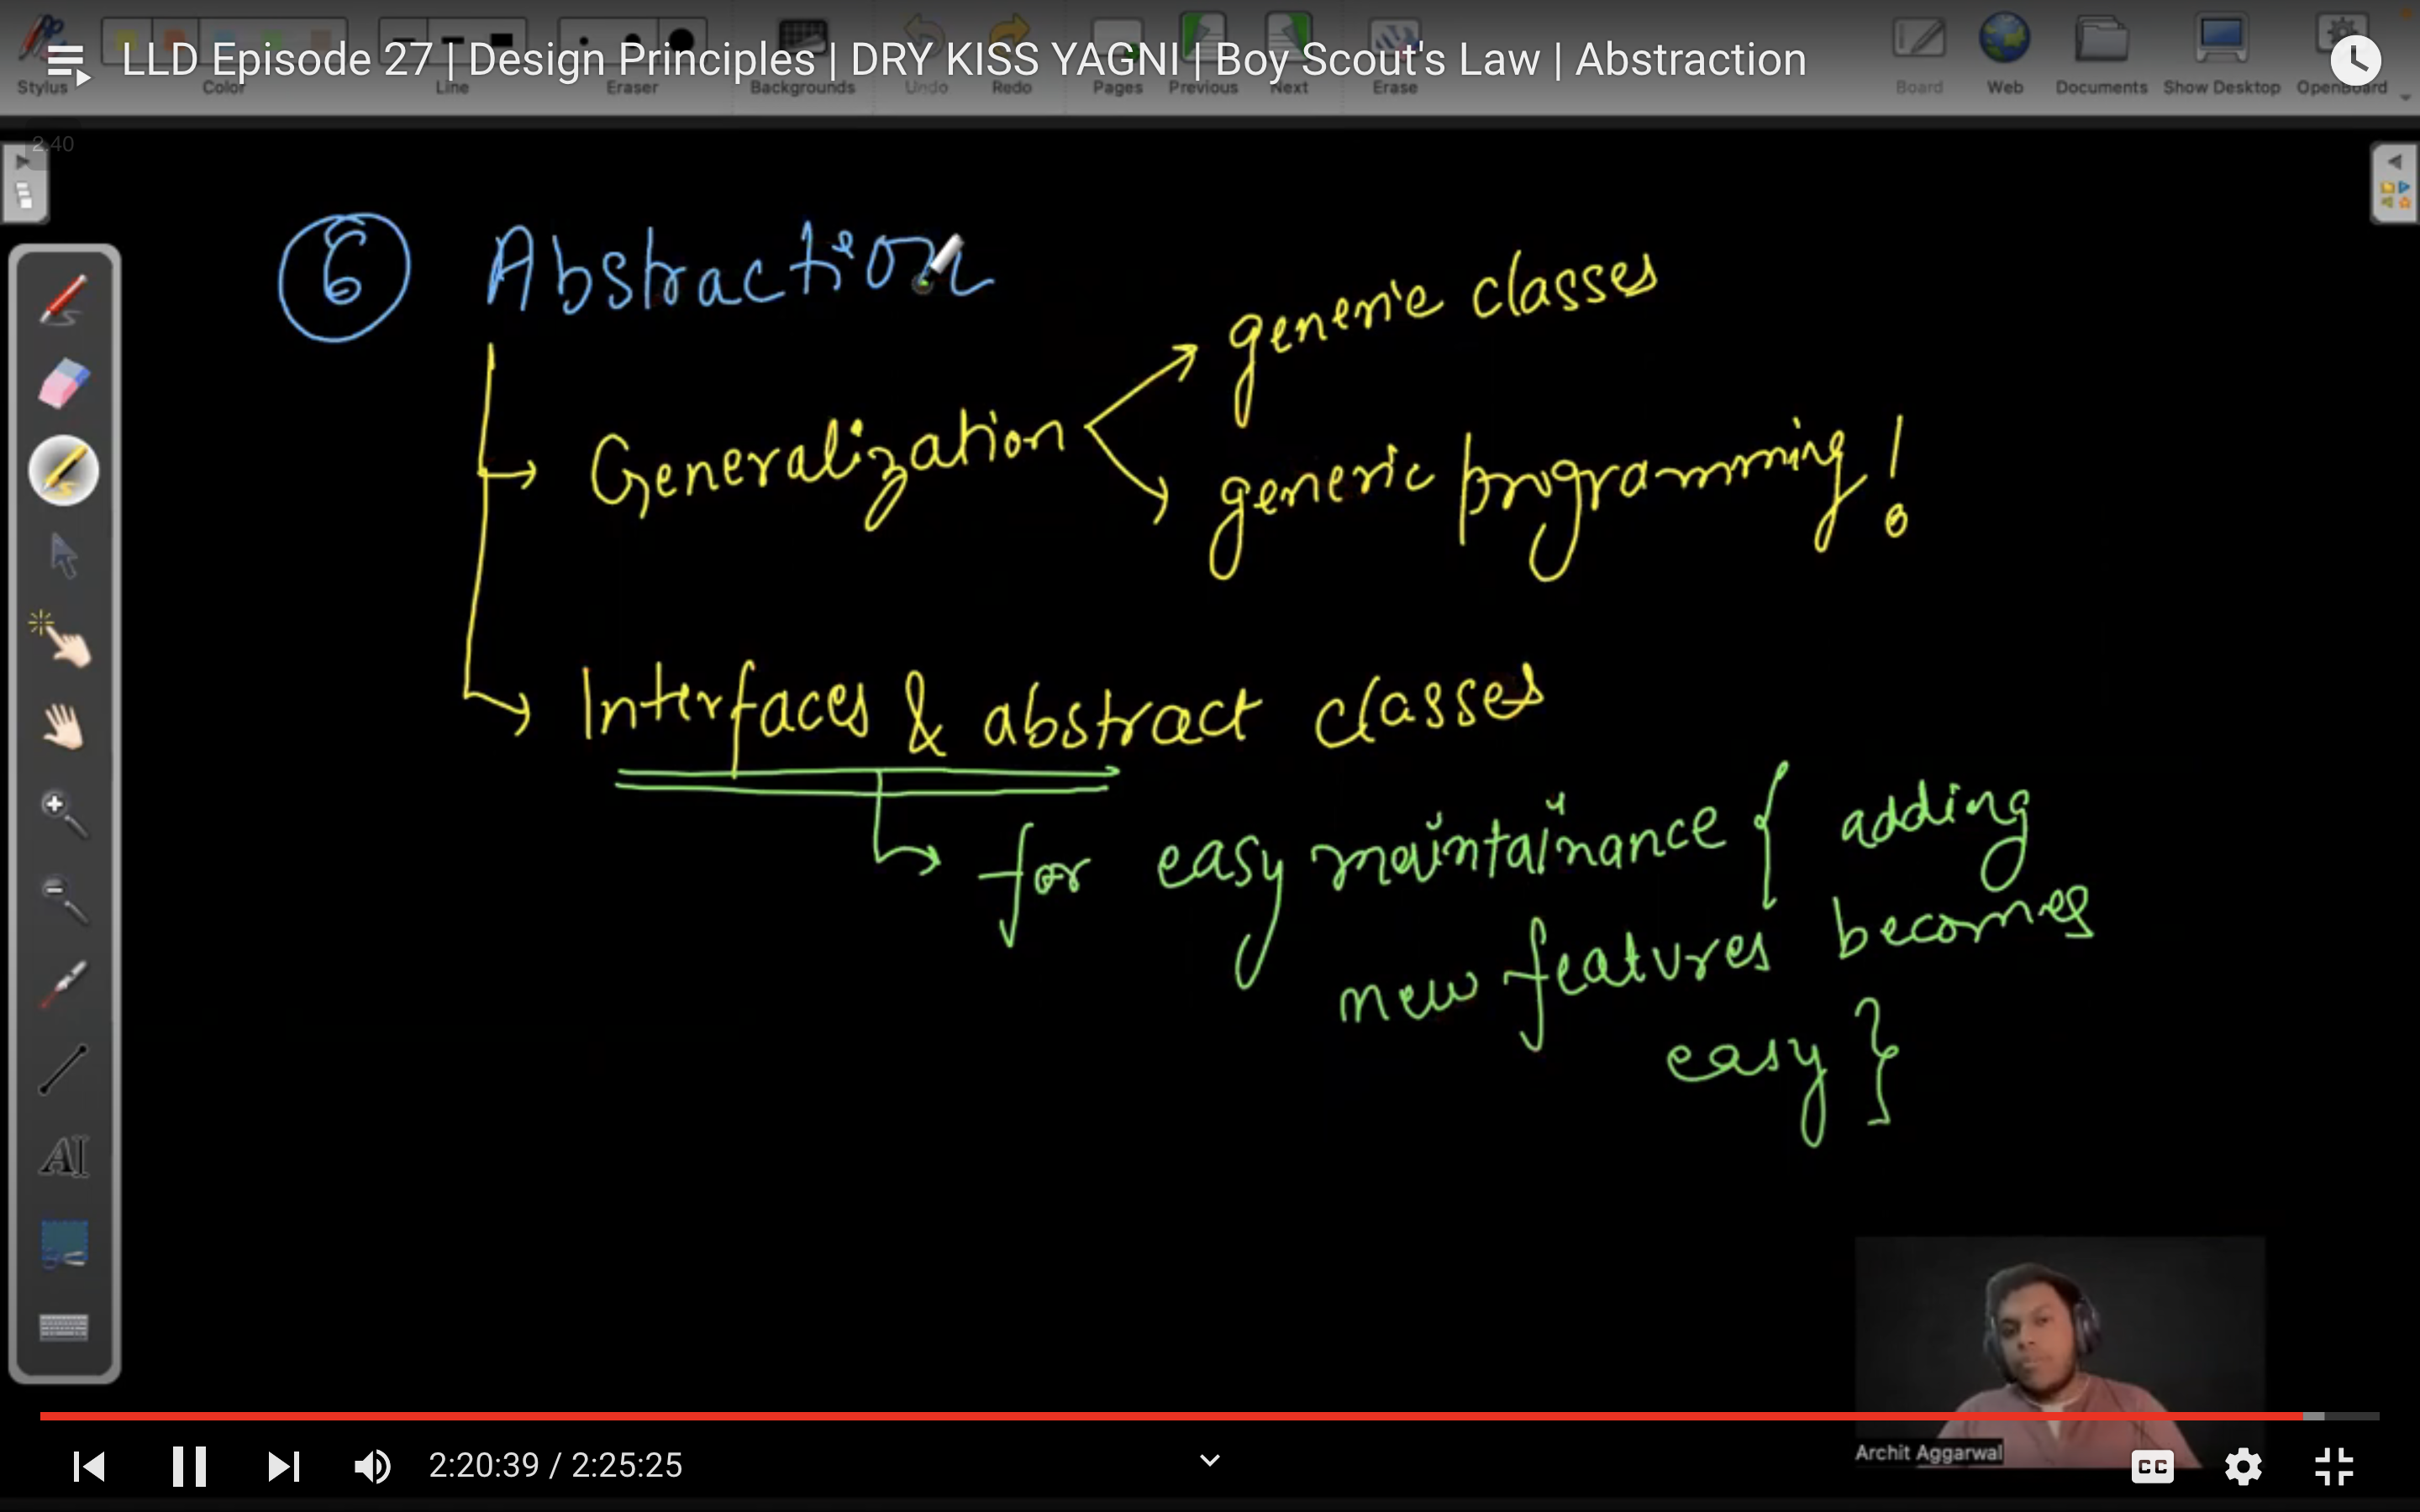 LLD Episode 27 | Design Principles | DRY KISS YAGNI | Boy Scout's Law | Abstraction
Stylus Color Line Eraser Backgrounds Undo Redo Pages Previous Next Erase Board Web Documents Show Desktop OpenBoard
2.40
6 Abstraction
generic classes
Generalization
generic programming!
Interfaces & abstract classes
for easy maintainance { adding
new features becomes
easy }
AI
Archit Aggarwal
2:20:39 / 2:25:25
CC